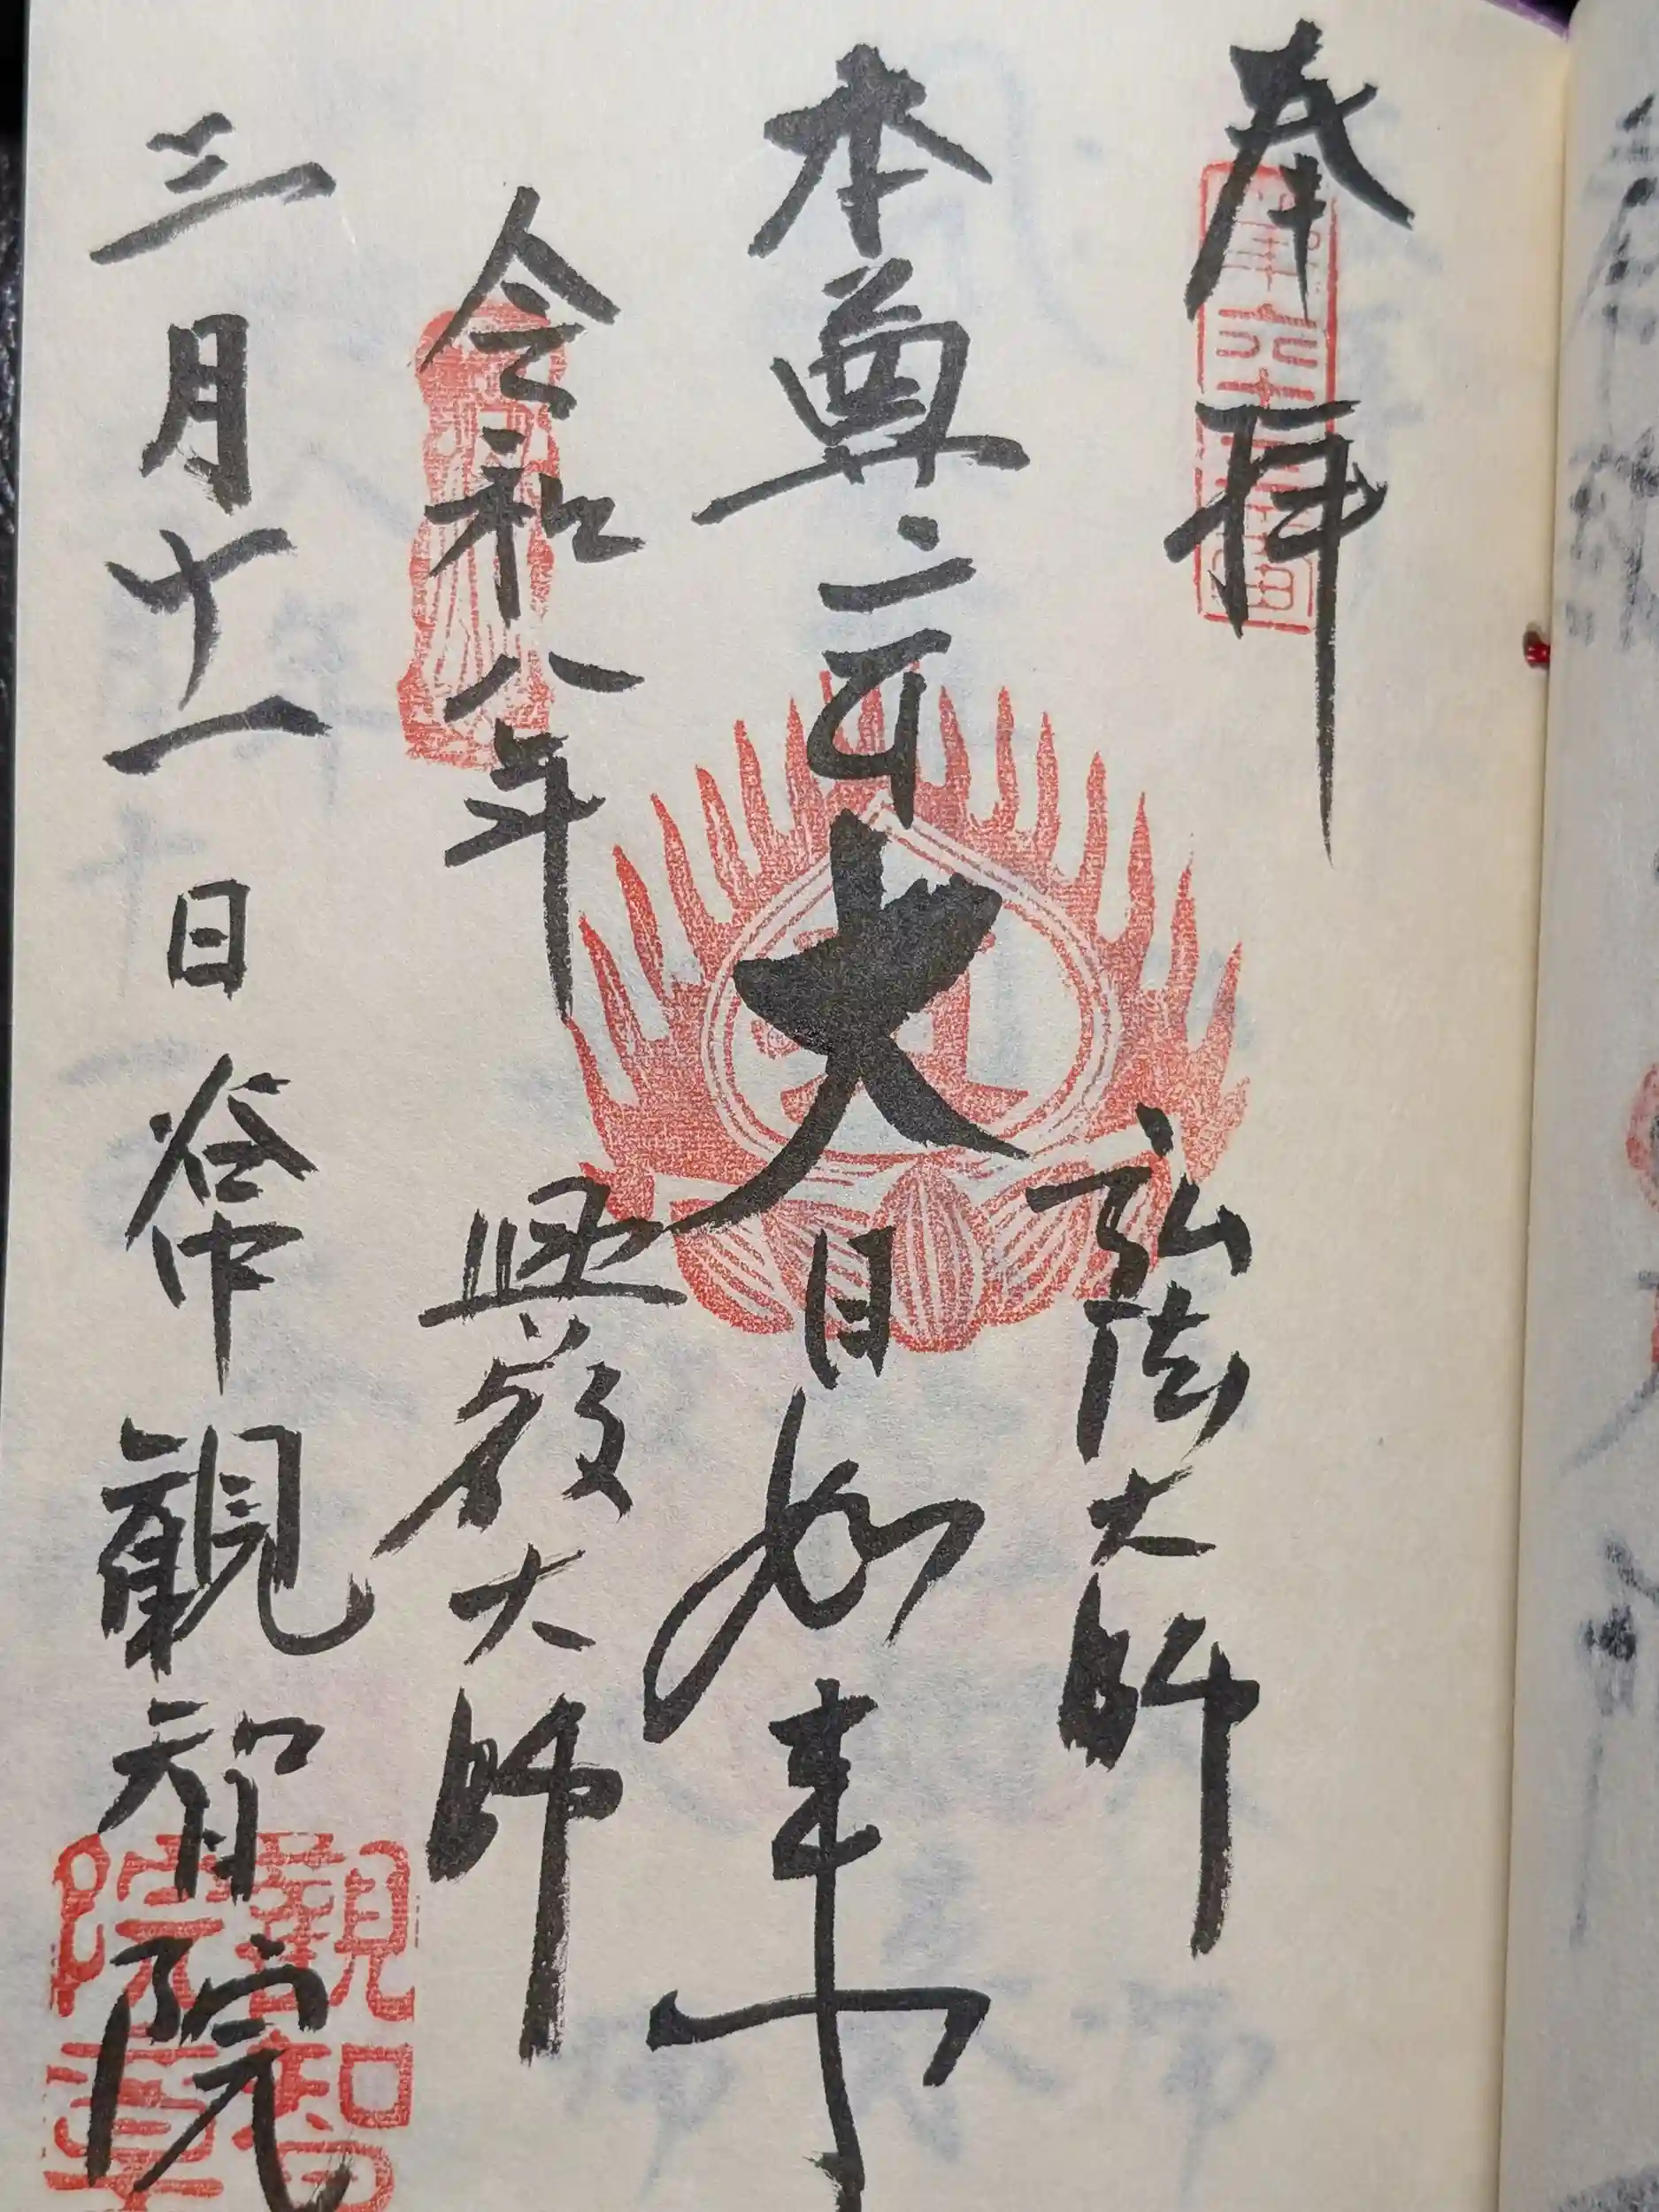 奉拝
第六十三番
弘法大師
本尊
大日如来
令和八年
興教大師
三月十一日 谷中 觀智院
觀智院